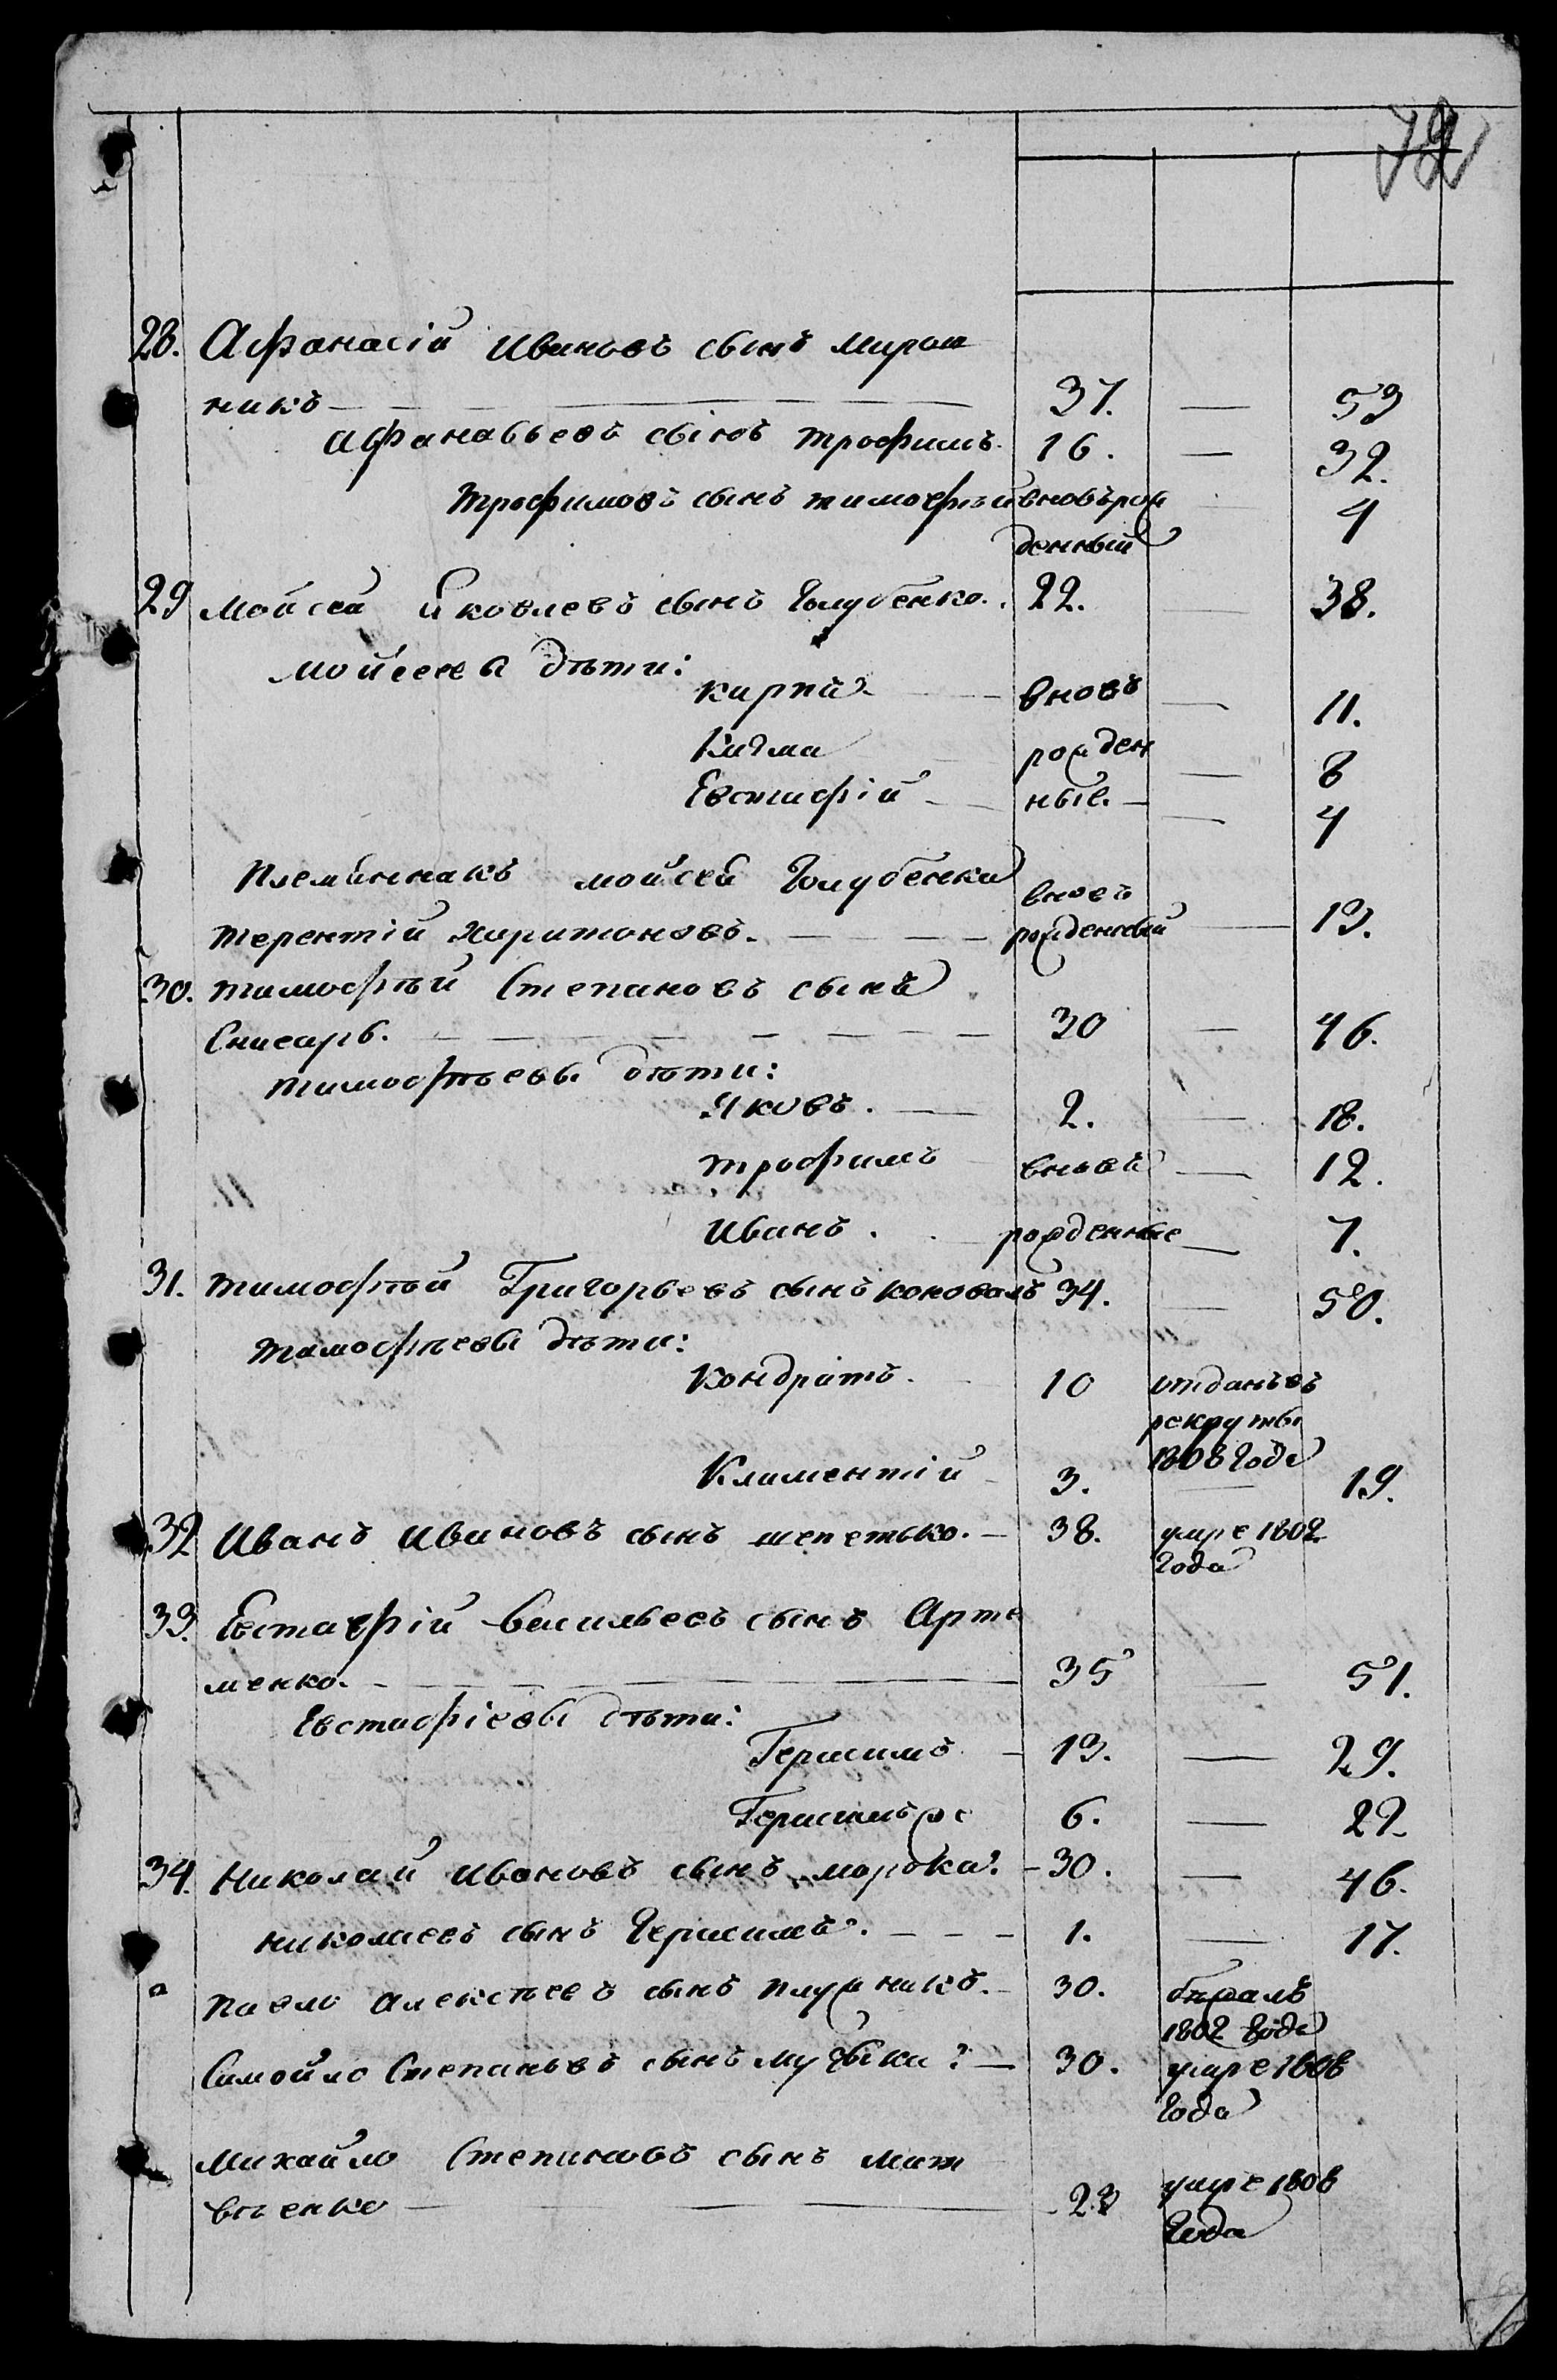 72
28. Афанасій Ивановъ сынъ Мирош
никъ 37. — 53
Афанасьевъ сынъ Трофимъ. 16. — 32.
Трофимовъ сынъ Тимофѣй вновьрож — 4
денный
29 Мойсей Яковлевъ сынъ Голубенко. 22. — 38.
Мойсеевы дѣти:
Кирій вновь — 11.
Кизма рожден — 8
Евстафій ные. — 4
Племянникъ Мойсея Голубенка вновь
Терентій Харитоновъ. рожденный — 13.
30. Тимофѣй Степановъ сынъ
Снисарь. 30 — 46.
Тимофѣевы дѣти:
Яковъ. 2. — 18.
Трофимъ вновь — 12.
Иванъ. рожденные — 7.
31. Тимофѣй Григорьевъ сынъ Коновалъ 34. — 50.
Тимофѣевы дѣти:
Кондратъ. 10 отданъ въ
рекруты
1808 года
Климентій 3. — 19.
32 Иванъ Ивановъ сынъ Шепетько. 38. умре 1802
года
33. Евстафій Васильевъ сынъ Арте
менко. 35 — 51.
Евстафіевы дѣти:
Герасимъ 13. — 29.
Герасимъ же 6. — 22.
34. Николай Ивановъ сынъ Моро́ка? 30. — 46.
Николаевъ сынъ Герасимъ. 1. — 17.
Павло Алексѣевъ сынъ Плужникъ. 30. бѣжалъ
1802 года
Самойло Степановъ сынъ Музыка? 30. умре 1808
года
Михайло Степановъ сынъ Мат
вѣенко 23 умре 1808
года